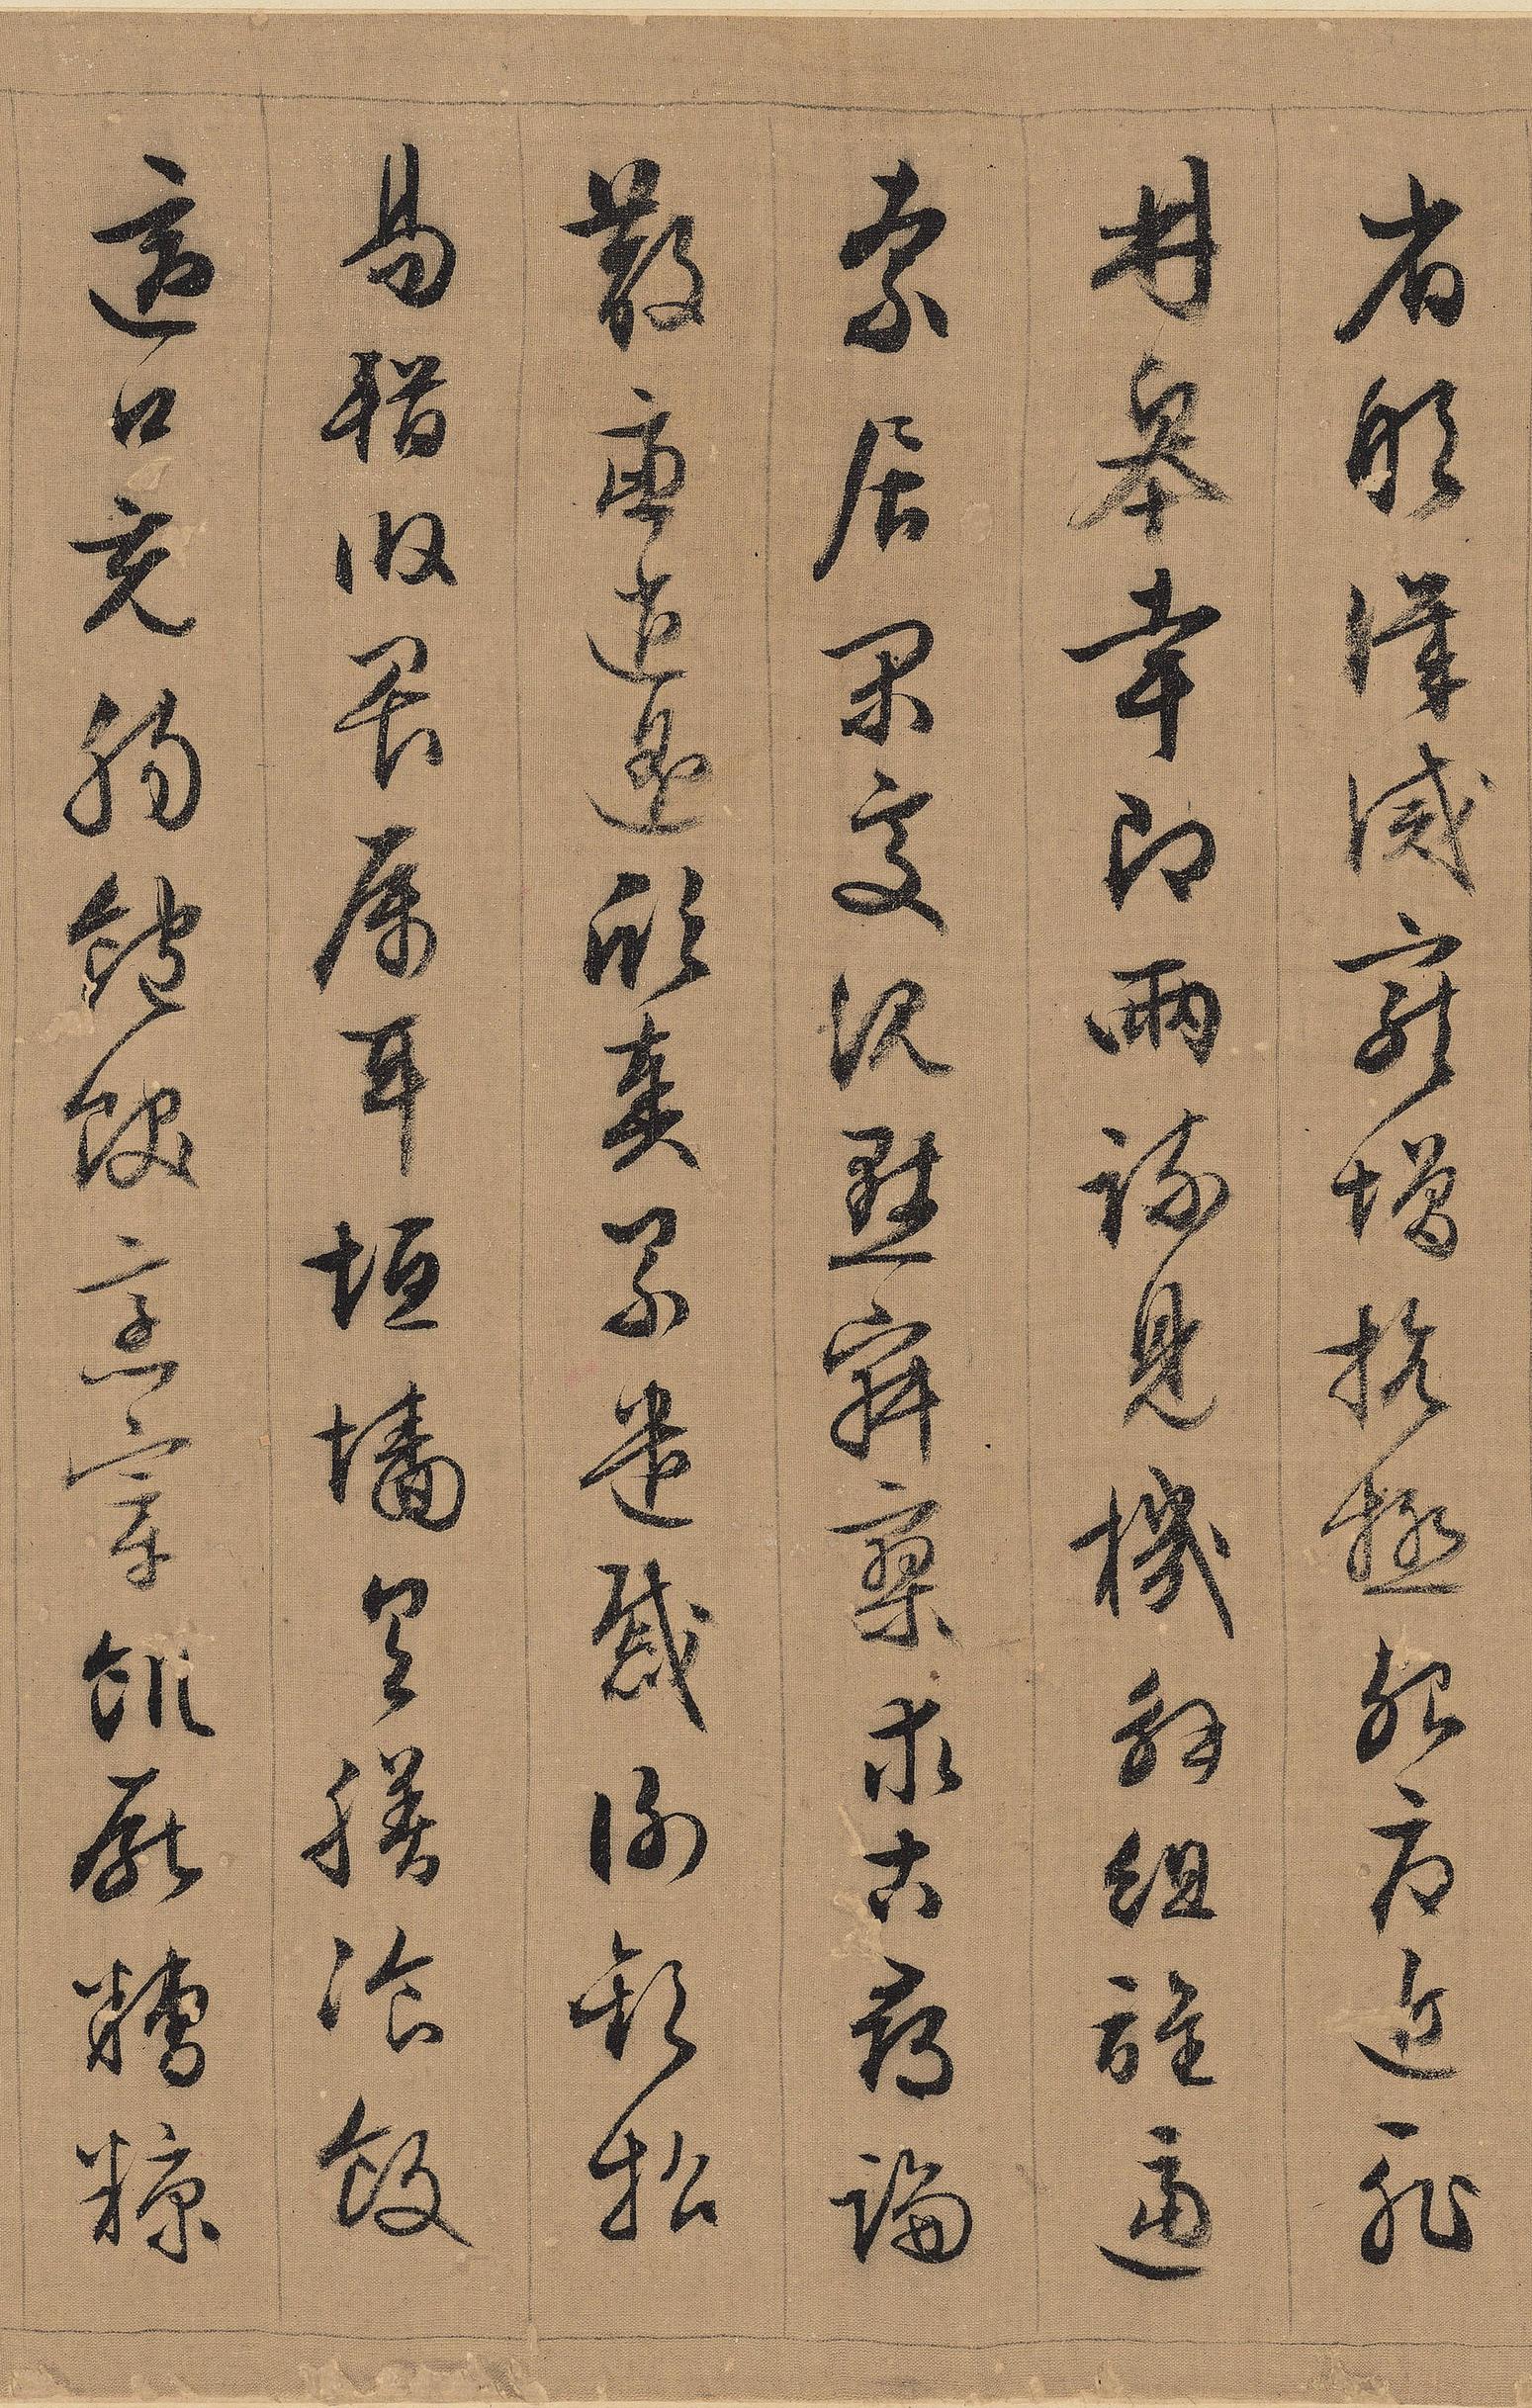 省躬譏誡寵增抗極殆辱近耻
林皋幸即兩疏見機解組誰逼
索居閑處沉默寂寥求古尋論
散慮逍遙欣奏累遣慼謝歡招
易輶攸畏屬耳垣墻具膳飡飯
適口充腸飽飫烹宰飢厭糟糠